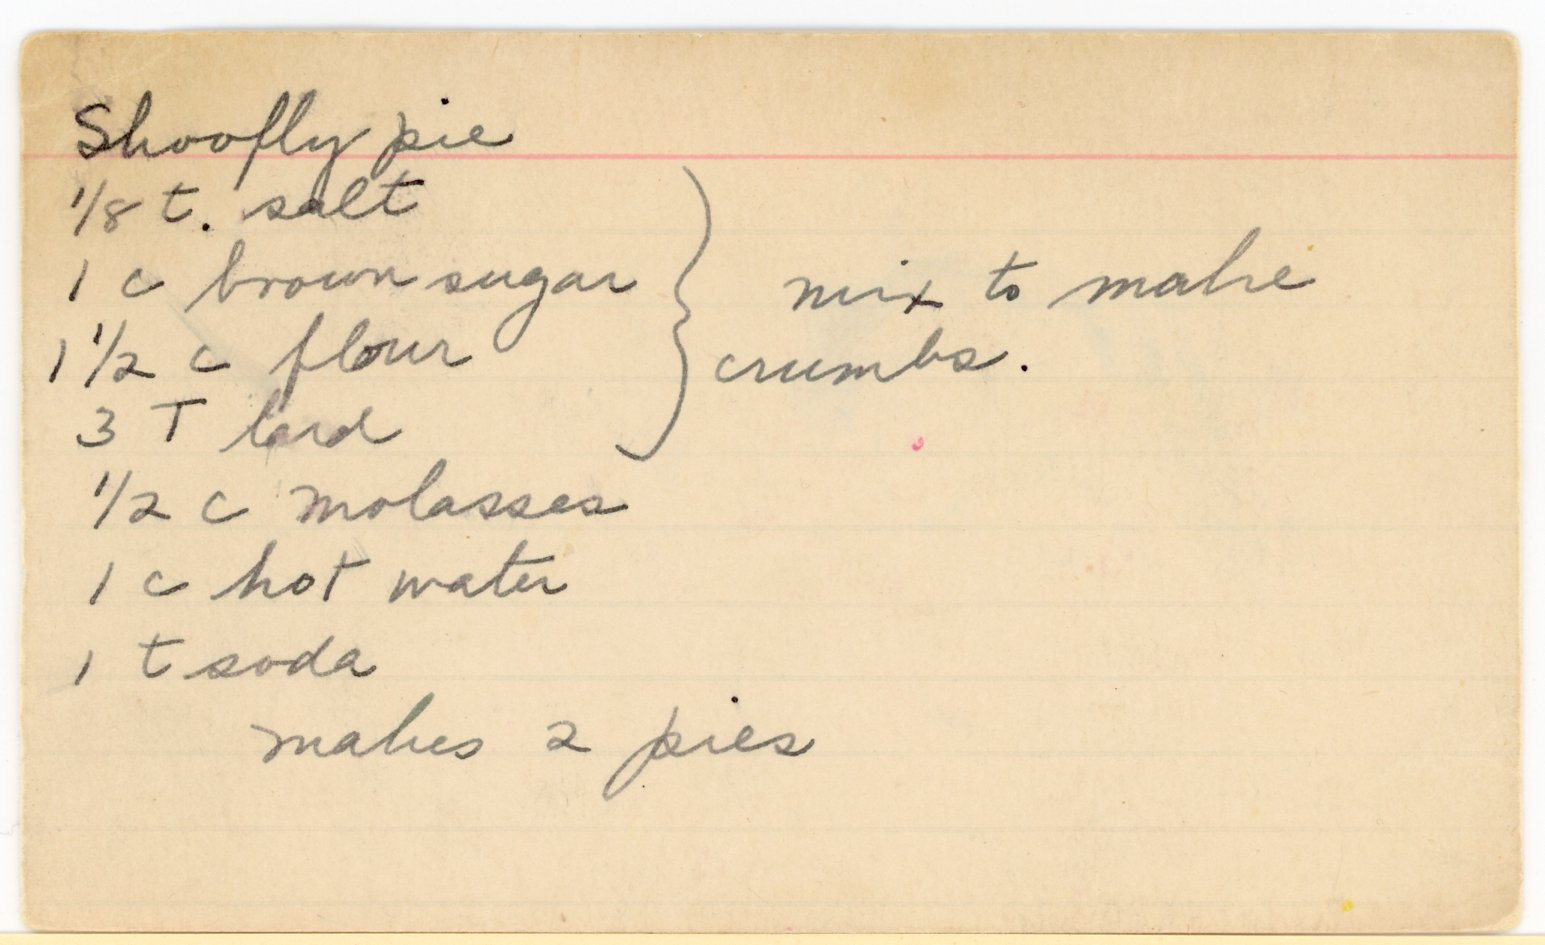 Shoofly pie
1/8 t. salt
1 c brown sugar
1 1/2 c flour
3 T lard
mix to make
crumbs.
1/2 c molasses
1 c hot water
1 t soda
makes 2 pies